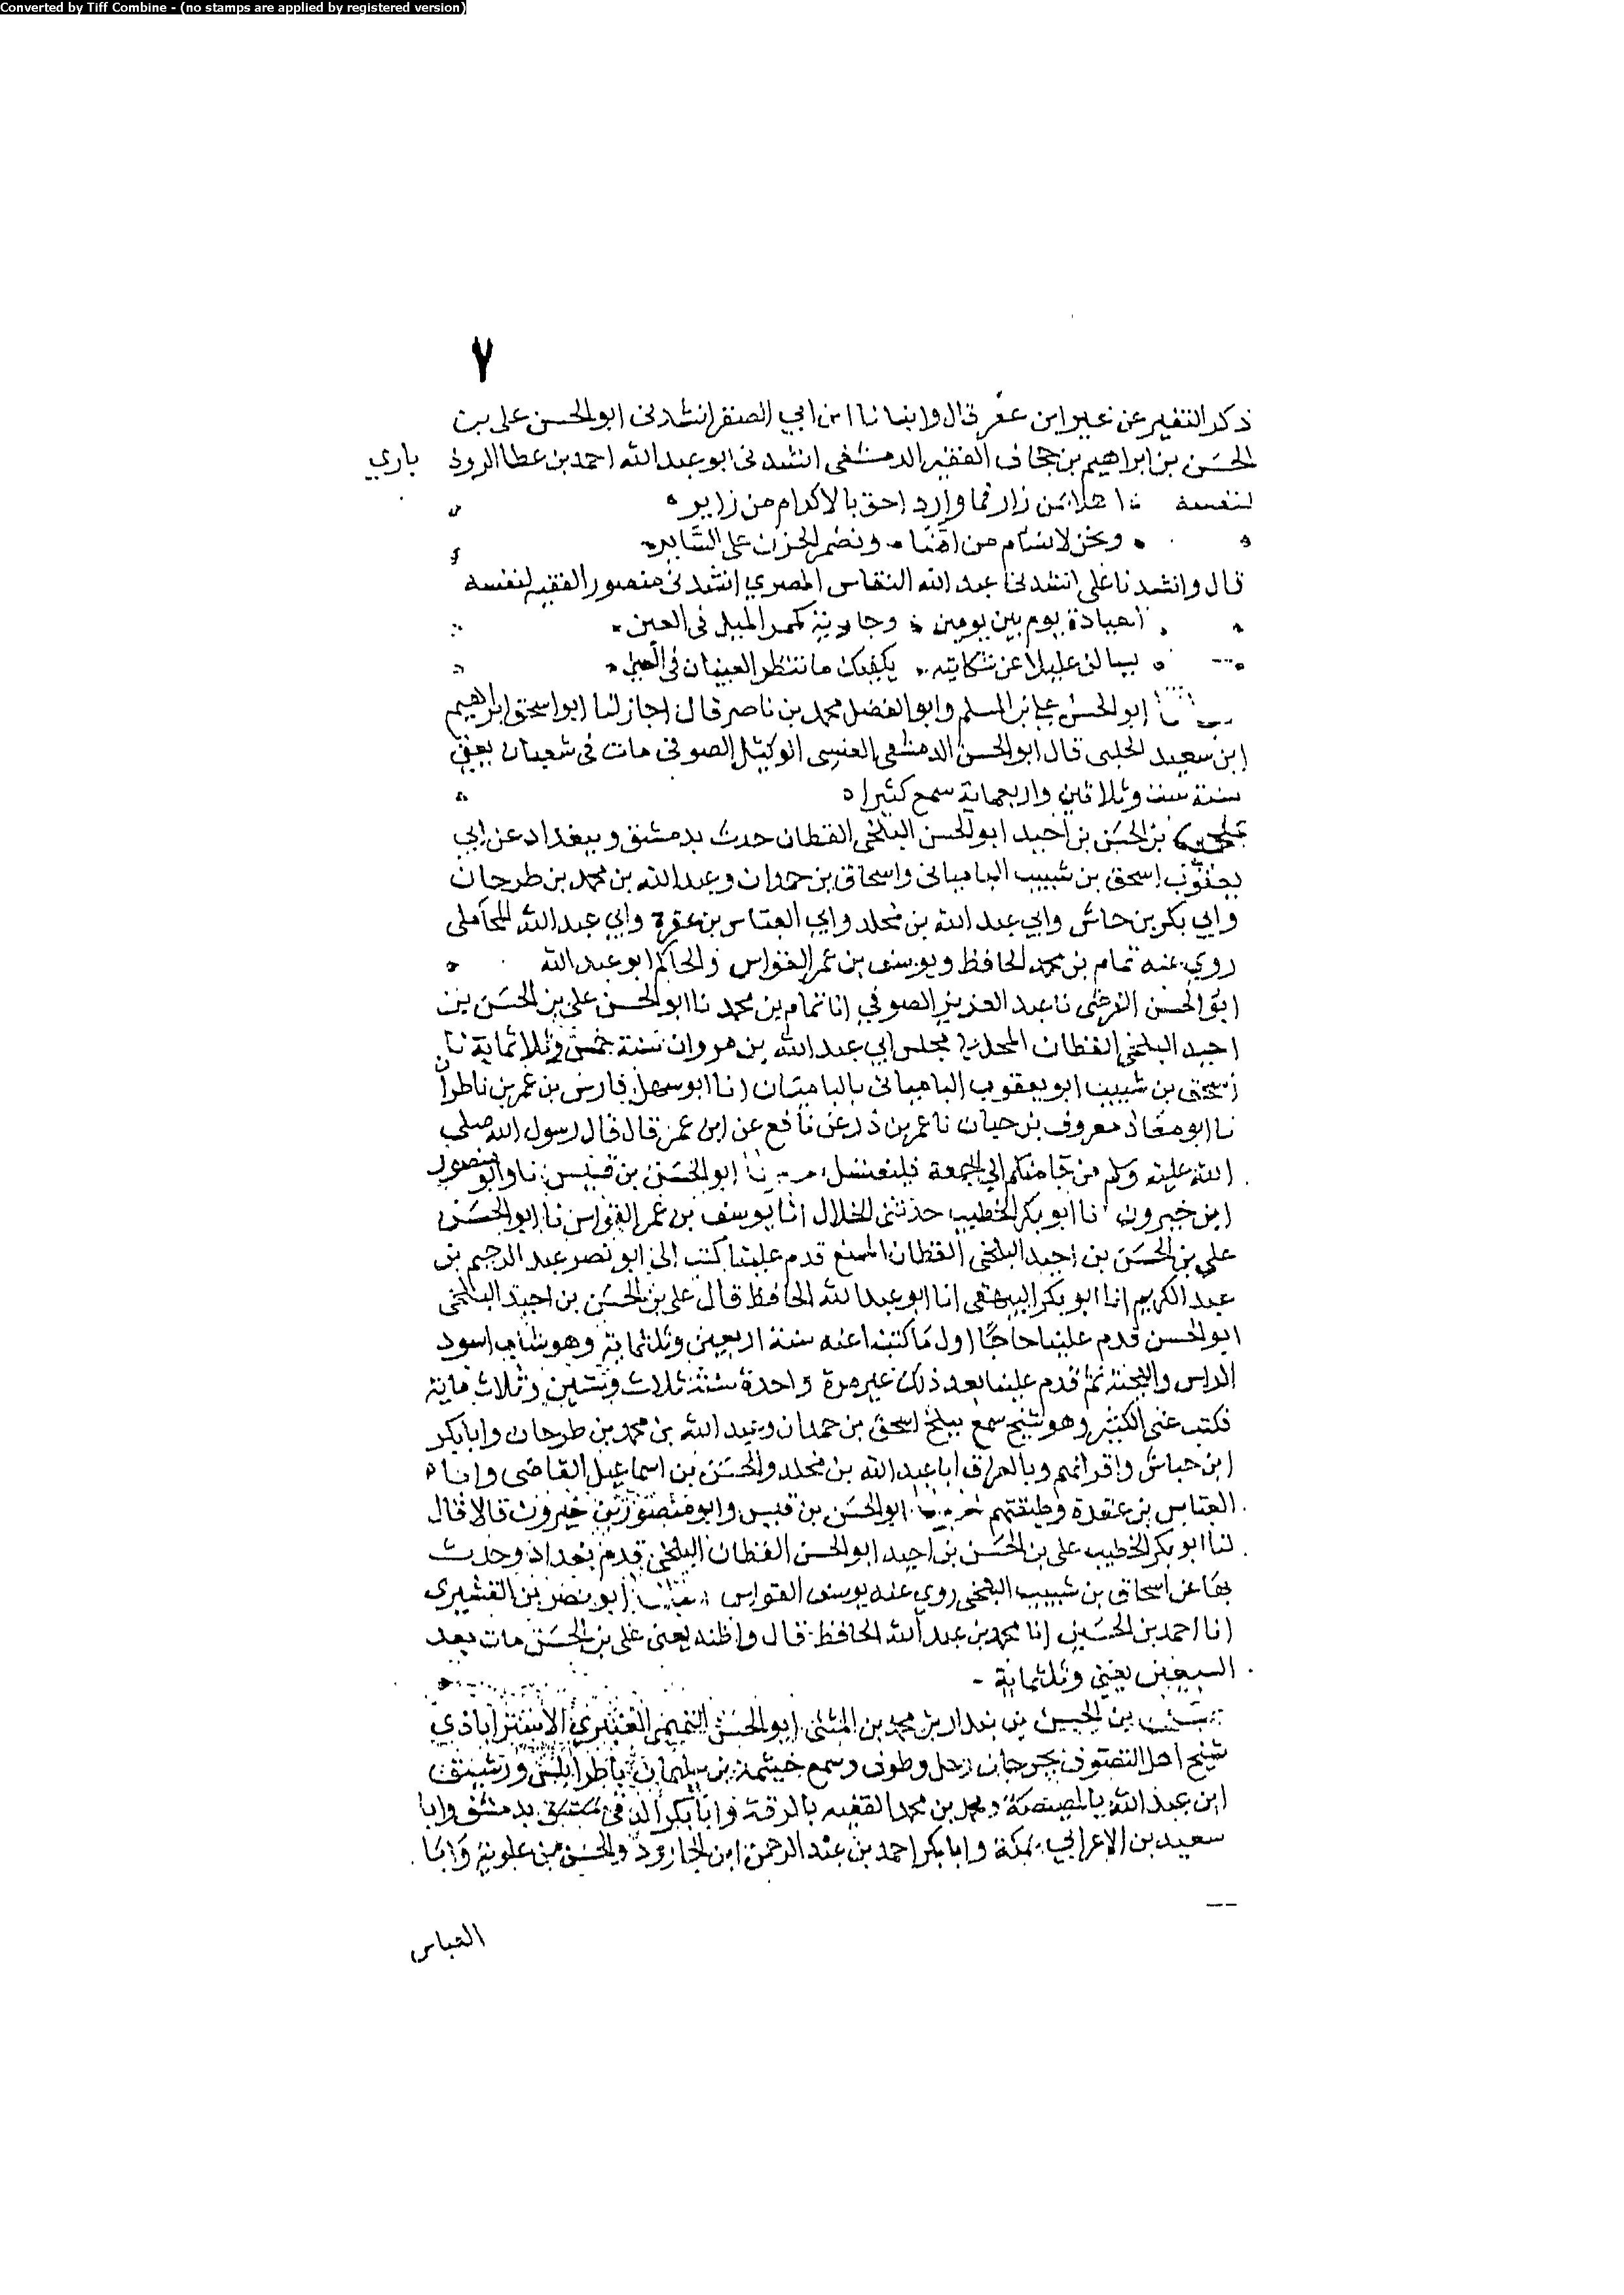 Converted by Tiff Combine - (no stamps are applied by registered version)
٧
ذكر التفير عن غير ابن عمر قال وانبانا ابن ابي الصقر انشدنى ابو الحسن على بن
الحسَن بن ابراهيم بن جحاف الفقيه الدمشقى انشدنى ابو عبد الله احمد بن عطا الروذ باري
لنفسه اهلا بمن زار فما وارد احق بالاكرام من زاير
ونحن لا نسام من امّنا ونضمر الحزن على السّاير
قال وانشدنا على انشدنى عبد الله النقاس المصري انشدنى منصور الفقيه لنفسه
عيادة يوم بين يومين وجلوسة كمر الميل فى العين
يسالن عليلا عن شكايته يكفيك ما تنظر العينان فى العين
ابو الحسن على بن المسلم وابو الفضل محمد بن ناصر قال اجاز لنا ابو اسحق ابراهيم
ابن سعيد الحلبى قال ابو الحسن الدمشقى العنسى الوكيل الصوفى مات فى شعبان يعنى
سنة ست وثلاثين واربعماية سمع كثيرا
بن الحسَن بن احيد ابو الحسن البلخى القطان حدث بدمشق وببغداد عن ابي
يعقوب اسحق بن شبيب البامياني واسحاق بن حمدان وعبد الله بن محمد بن طرخان
وابي بكر بن حباش وابي عبد الله بن مخلد وابي العباس بن عقدة وابي عبد الله المحاملى
روي عنه تمام بن محمد الحافظ ويوسف بن عمر القواس والحاكم ابو عبد الله
ابو الحسن الفرضى نا عبد العزيز الصوفي انا تمام بن محمد نا ابو الحسن على بن الحسَن بن
احيد البلخى القطان مجلس ابي عبد الله بن مروان سنة خمس وثلاثماية نا
اسحق بن شبيب ابو يعقوب الباميانى بالباميان انا ابو سهل فارس بن عمر بن ناطرا
نا ابو معَاذ معروف بن حيان نا عمر بن ذر عن نافع عن ابن عمر قال قال رسول الله صلى
الله عليه وسلم من جَا منكم الي الجمعة فليغتسل نا ابو الحسَن بن قبيس نا وابو منصور
ابن خيرون انا ابو بكر الخطيب حدثنى الخلال انا يوسف بن عمر القواس نا ابو الحسَن
على بن الحسَن بن احيد البلخى القطان قدم علينا كتب الى ابو نصر عبد الرحيم بن
عبد الكريم انا ابو بكر البيهقى انا ابو عبد الله الحافظ قال على بن الحسَن بن احيد البلخى
ابو الحسن قدم علينا حاجًا اول مَا كتبنا عنه سنة اربعين وثلثماية وهو شاب اسود
الراس واللحية ثم قدم علينا بعد ذلك غير مرة واحدة سنة ثلاث وستين وثلاث ماية
فكتب عنى الكثير وهو شيخ سمع ببلخ اسحق بن حمدان وعبد الله بن محمد بن طرخان وابا بكر
ابن حباش واقرانهم وبالعراق ابا عبد الله بن مخلد والحسَن بن اسماعيل القاضى وابا
العباس بن عقدة وطبقتهم ابو الحسَن بن قبيس وابو منصور بن خيرون قالا قال
لنا ابو بكر الخطيب على بن الحسَن بن احيد ابو الحسن القطان البلخى قدم بغداد وحدث
بهَا عن اسحاق بن شبيب البلخى روي عنه يوسف القواس ابو نصر بن القشيرى
انا احمد بن الحسَين انا محمد بن عبد الله الحافظ قال واظنه يعنى على بن الحسَن مات بعد
السبعين يعنى وثلثماية
بن الحسين بن بندار بن محمد بن المثنى ابو الحسَن التميمى العنبري الاستراباذي
شيخ اهل التصوف بجرجان رحل وطوف وسمع خيثمة بن سليمان باطرابلس
ابن عبد الله بالمصيصة ومحمد بن محمد الفقيه بالرقة وابا بكر الدقى بدمشق وابا
سعيد بن الاعرابي بمكة وابا بكر احمد بن عبد الرحمن ابن الجارود والحسَن بن علويه وَابَا
العباس